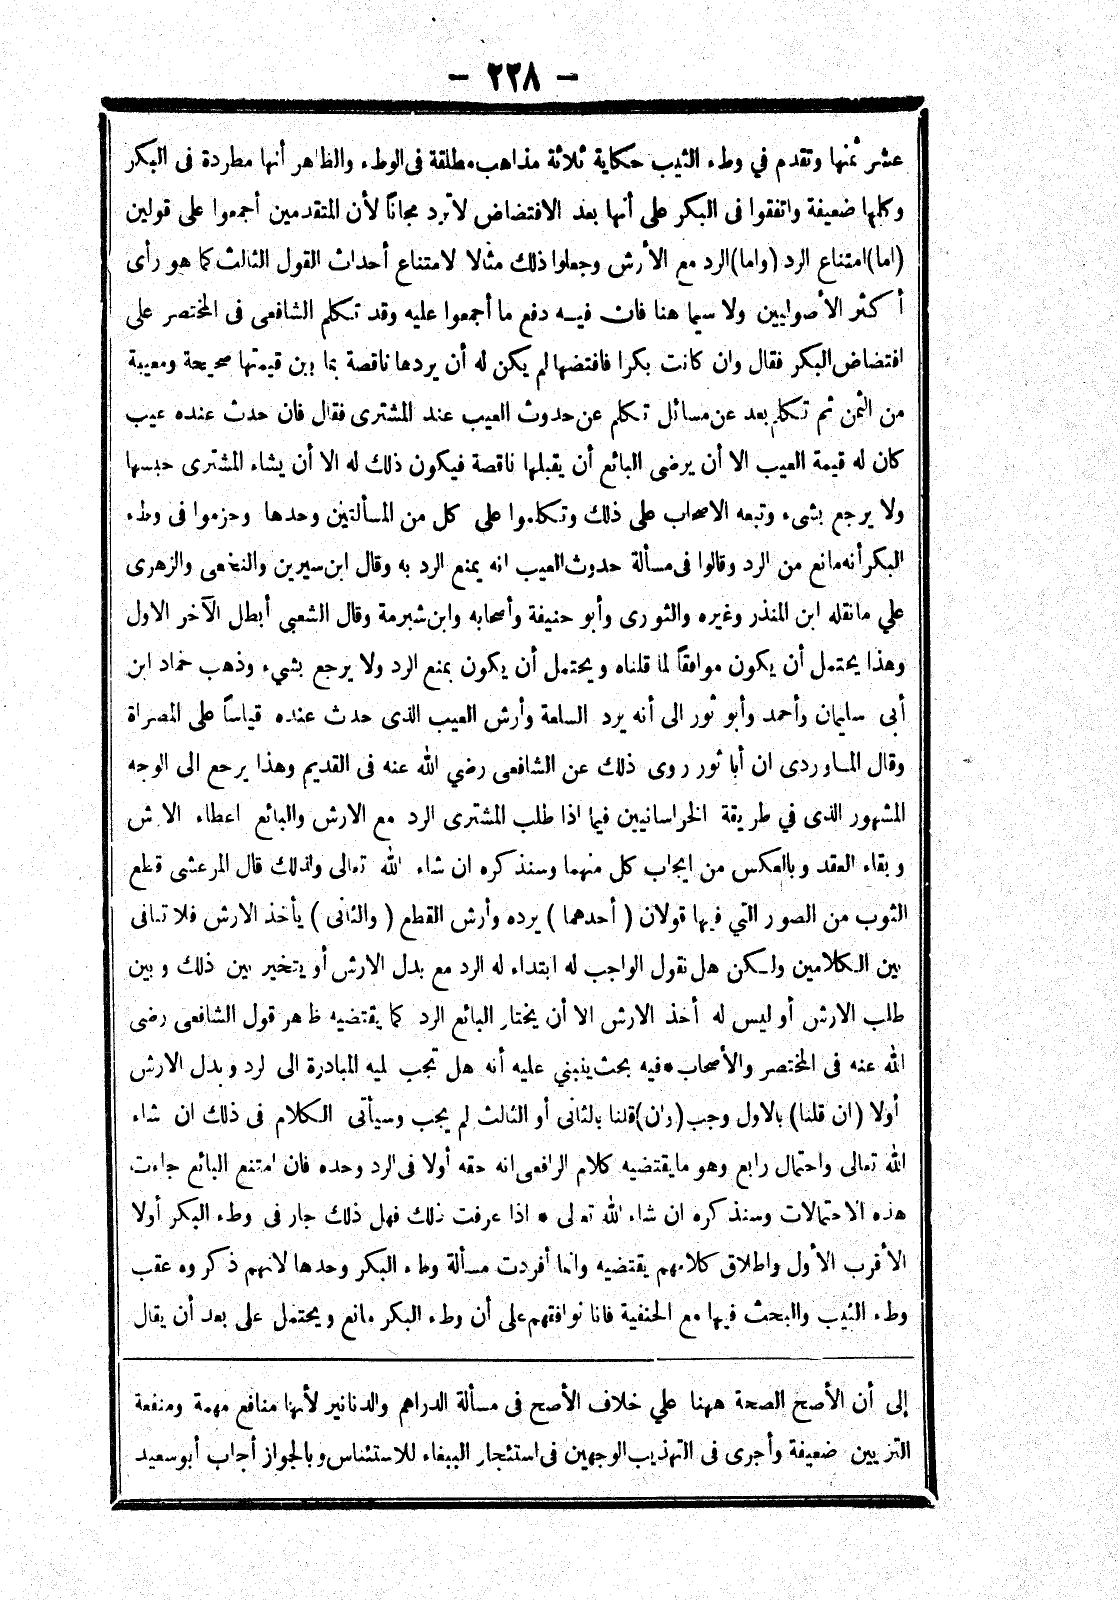 - ٢٢٨ -
عشر ثمنها وتقدم في وطء الثيب حكاية ثلاثة مذاهب مطلقة فى الوطء والظاهر أنها مطردة فى البكر
وكلها ضعيفة واتفقوا فى البكر على أنها بعد الافتضاض لاترد مجاناً لأن المتقدمين أجمعوا على قولين
(اما) امتناع الرد (واما) الرد مع الأرش وجعلوا ذلك مثالا لامتناع أحداث القول الثالث كما هو رأى
أكثر الأصوليين ولا سيما هنا فان فيه دفع ما أجمعوا عليه وقد تكلم الشافعى فى المختصر على
افتضاض البكر فقال وان كانت بكرا فافتضها لم يكن له أن يردها ناقصة بما بين قيمتها صحيحة ومعيبة
من الثمن ثم تكلم بعد عن مسائل تكلم عن حدوث العيب عند المشترى فقال فان حدث عنده عيب
كان له قيمة العيب الا أن يرضى البائع أن يقبلها ناقصة فيكون ذلك له الا أن يشاء المشترى حبسها
ولا يرجع بشىء وتبعه الاصحاب على ذلك وتكلموا على كل من المسألتين وحدها وجزموا فى وطء
البكر أنه مانع من الرد وقالوا فى مسألة حدوث العيب انه يمنع الرد به وقال ابن سيرين والنخعى والزهرى
علي مانقله ابن المنذر وغيره والثورى وأبو حنيفة وأصحابه وابن شبرمة وقال الشعبي أبطل الآخر الاول
وهذا يحتمل أن يكون موافقاً لما قلناه ويحتمل أن يكون بمنع الرد ولا يرجع بشيء وذهب حماد ابن
أبى سليمان وأحمد وأبو ثور الى أنه يرد السلعة وأرش العيب الذى حدث عنده قياساً على المصراة
وقال الماوردى ان أبا ثور روى ذلك عن الشافعى رضي الله عنه فى القديم وهذا يرجع الى الوجه
المشهور الذى في طريقة الخراسانيين فيما اذا طلب المشترى الرد مع الارش والبائع اعطاء الارش
وبقاء العقد وبالعكس من ايجاب كل منهما وسنذكره ان شاء الله تعالى ولذلك قال المرعشى قطع
الثوب من الصور التي فيها قولان ( أحدهما ) يرده وأرش القطع ( والثانى ) يأخذ الارش فلا تنافى
بين الكلامين ولكن هل نقول الواجب له ابتداء له الرد مع بدل الارش أو يتخير بين ذلك وبين
طلب الارش أو ليس له أخذ الارش الا أن يختار البائع الرد كما يقتضيه ظاهر قول الشافعى رضى
الله عنه فى المختصر والأصحاب * فيه بحث ينبني عليه أنه هل تجب عليه المبادرة الى الرد وبدل الارش
أولا (ان قلنا) بالاول وجب (وان) قلنا بالثانى أو الثالث لم يجب وسيأتى الكلام فى ذلك ان شاء
الله تعالى واحتمال رابع وهو مايقتضيه كلام الرافعى انه حقه أولا فى الرد وحده فان امتنع البائع جاءت
هذه الاحتمالات وسنذكره ان شاء الله تعالى * اذا عرفت ذلك فهل ذلك جار فى وطء البكر أولا
الأقرب الأول واطلاق كلامهم يقتضيه وانما أفردت مسألة وطء البكر وحدها لانهم ذكروه عقب
وطء الثيب والبحث فيها مع الحنفية فانا نوافقهم على أن وطء البكر مانع ويحتمل على بعد أن يقال
إلى أن الأصح الصحة ههنا علي خلاف الأصح فى مسألة الدراهم والدنانير لأنها منافع مهمة ومنفعة
التزيين ضعيفة وأجرى فى التهذيب الوجهين فى استئجار الببغاء للاستئناس وبالجواز أجاب أبوسعيد